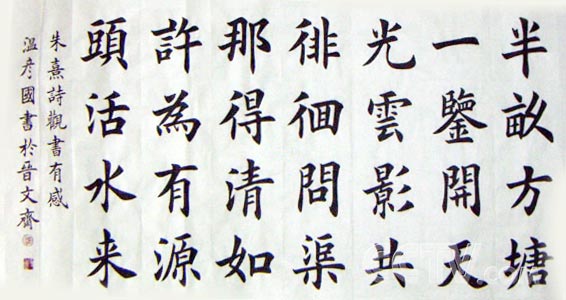 半畝方塘
一鑒開天
光雲影共
徘徊問渠
那得清如
許為有源
頭活水来
朱熹詩觀書有感
溫彥國書於晉文齋